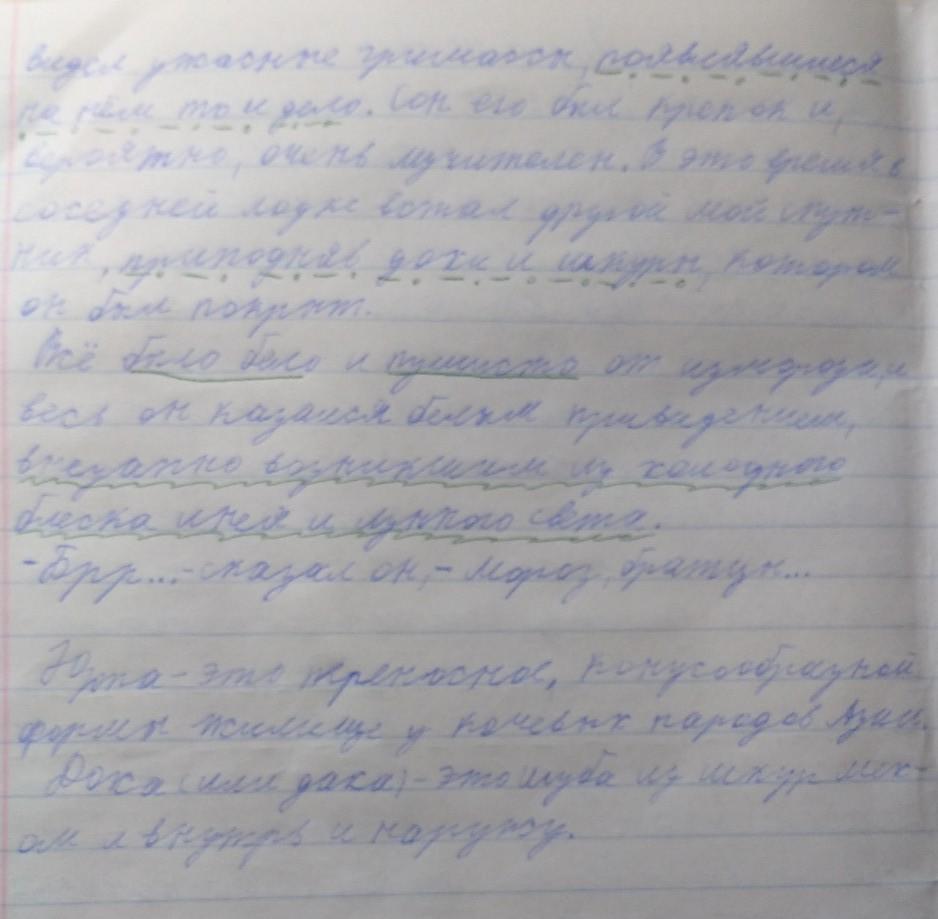 видел ужасные гримасы, появлявшиеся
на нём то и дело. Сон его был крепок и,
вероятно, очень мучителен. В это время в
соседней лодке встал другой мой спут-
ник, приподняв дохи и шкуры, котором
он был покрыт.
Всё было бело и пушисто от изморози, и
весь он казался белым привидением,
внезапно возникшим из холодного
блеска инея и лунного света.
-Брр...-сказал он,- Мороз, братцы...
Юрта - это переносное, конусообразной
формы жилище у кочевых народов Азии.
Доха (или даха) - это шуба из шкур мех-
ом и внутрь и наружу.